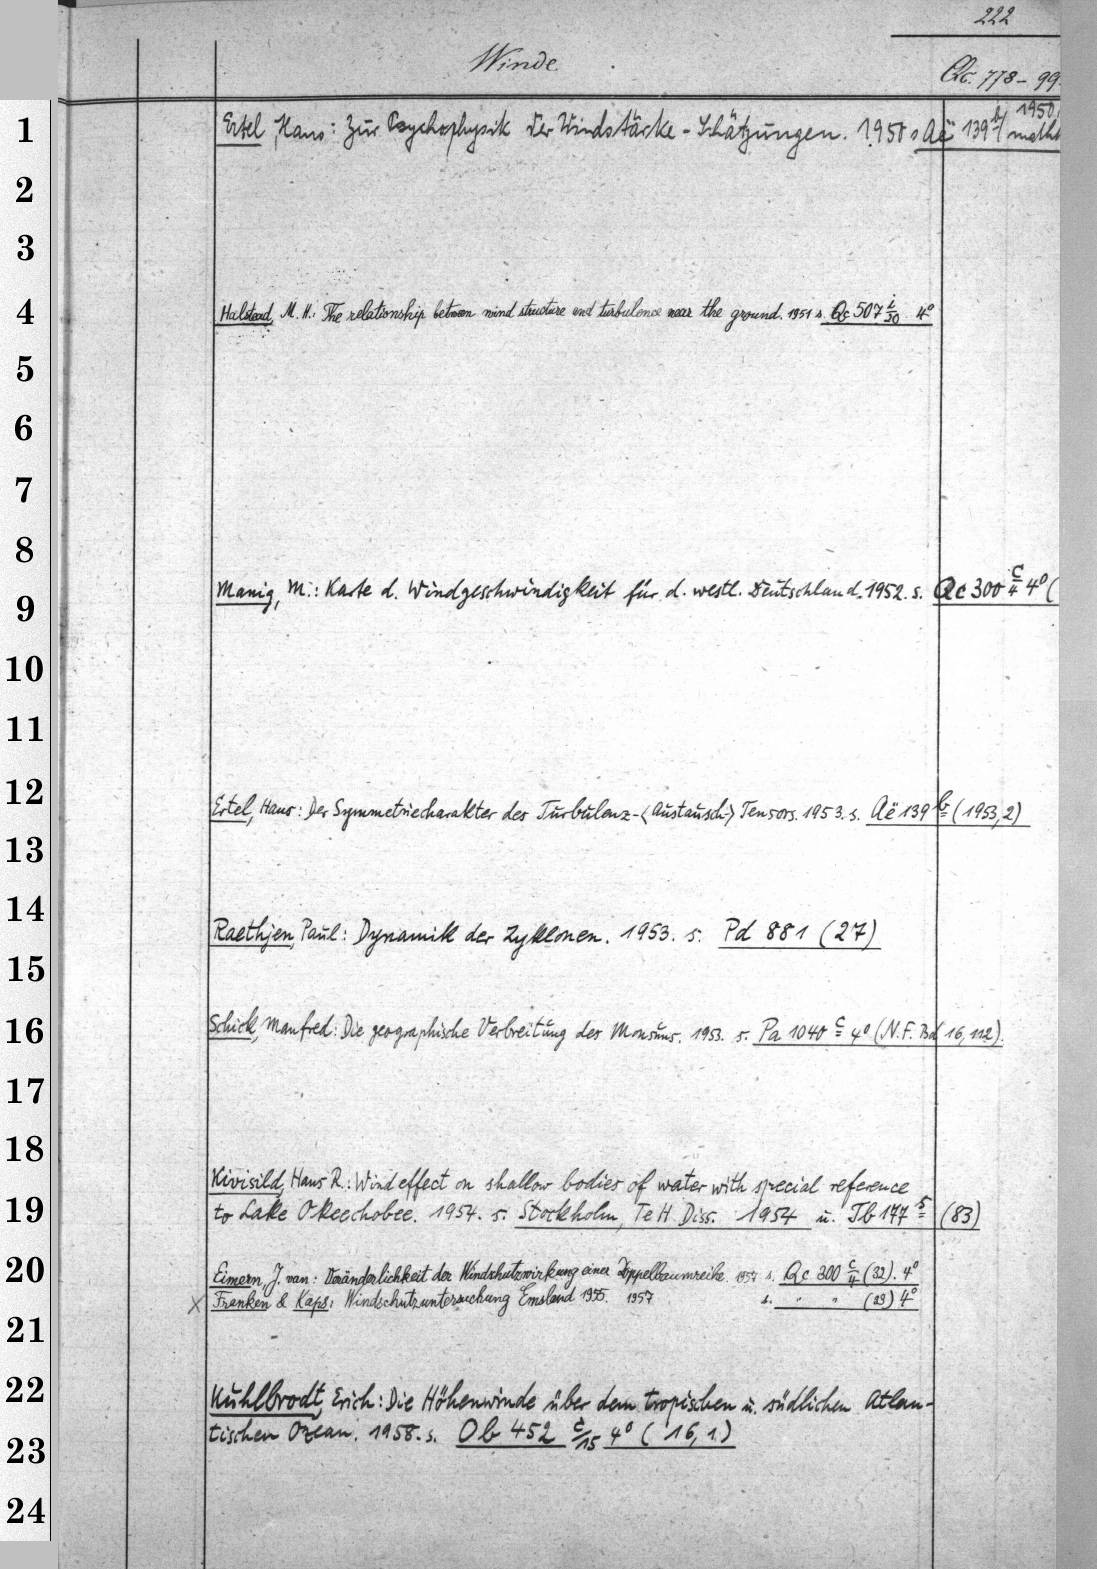 222
Winde.
Qc. 778-99
1950,
1
Ertel, Hans: Zur Psychophysik der Windstärke-Schätzungen. 1950 s Aë 139 b/ math
2
3
4
Halstead, M. H.: The relationship between wind structure and turbulence near the ground. 1951 s. Qc 507 i/30 4°
5
6
7
8
9
Manig, M.: Karte d. Windgeschwindigkeit für d. westl. Deutschland. 1952. s. Qc 300 c/4 4° (
10
11
12
Ertel, Hans: Der Symmetriecharakter des Turbulenz-<Austausch-> Tensors. 1953. s. Aë 139 b (1953,2)
13
14
Raethjen, Paul: Dynamik der Zyklonen. 1953. s. Pd 881 (27)
15
16
Schick, Manfred: Die geographische Verbreitung des Monsuns. 1953. s. Pa 1040 c 4° (N.F. Bd 16, 112).
17
18
Kivisild, Hans R.: Wind effect on shallow bodies of water with special reference
19
to Lake Okeechobee. 1954. s. Stockholm, Te H. Diss. 1954 u. Tb 177 s (83)
20
Eimern, J. van: Veränderlichkeit der Windschutzwirkung einer Doppelbaumreihe. 1957 s. Qc 300 c/4 (32). 4°
x Franken & Kaps: Windschutzuntersuchung Emsland 1955. 1957 s. " " (33) 4°
21
22
Kuhlbrodt, Erich: Die Höhenwinde über dem tropischen u. südlichen Atlan-
23
tischen Ozean. 1958. s. Ob 452 c/15 4° (16, 1.)
24